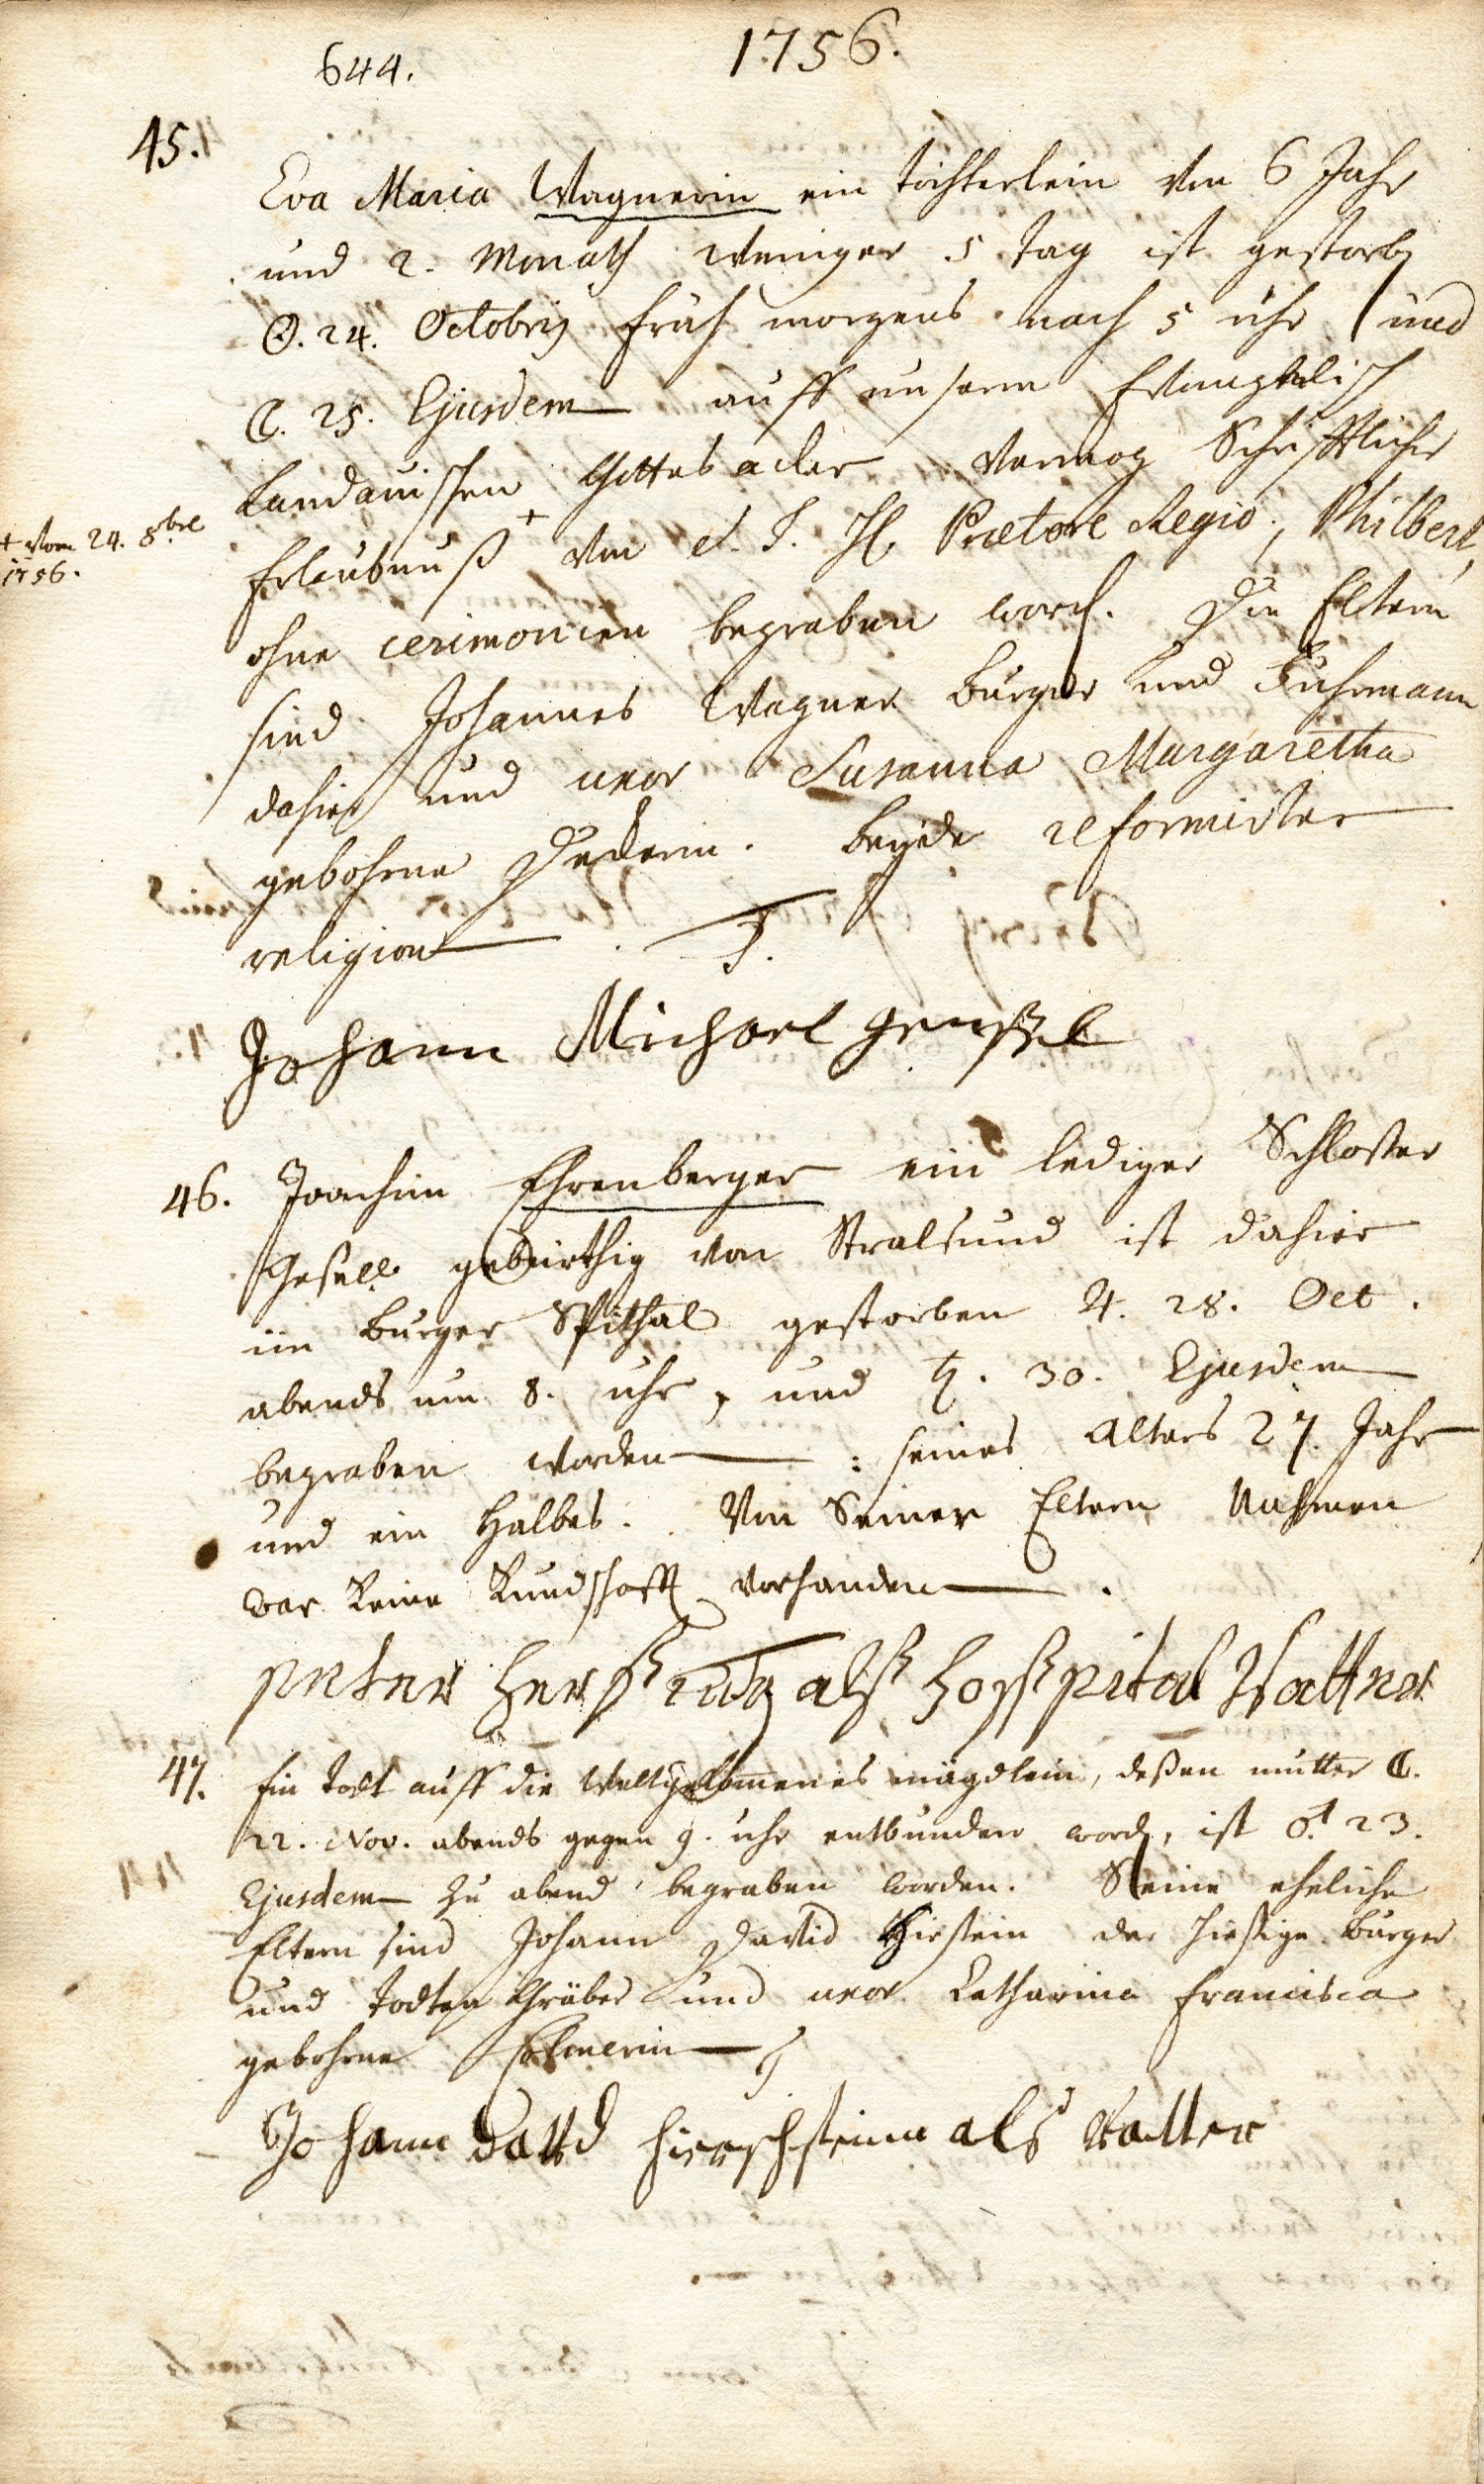 644.
1756.
45.
Eva Maria Wagnerin ein töchterlein von 6 Jahr
und 2. Monath weniger 5 tag ist gestorben
☉. 24. Octobris früh morgens nach 5 uhr und
☾. 25. Ejusdem auff unserm Evangelisch
Landauischen Gottes acker vermog Schrifftlicher
Erlaubnuß + von Praetore Regio, Philbert,
+ vom 24. 8bre
1756.
ohne cerimonien begraben word. Die Eltern
sind Johannes Wagner burger und Fuhrmann
dahier und uxor Susanna Margaretha
gebohrne beyde reformirter
religion
Johann Michael
46. Joachim Ehrenberger ein lediger Schlosser
Gesell gebürthig von Stralsund ist dahier
im burger Spithal gestorben ♃. 28. Oct.
abends um 8. uhr, und ♄. 30. Ejusdem
begraben worden: seines alters 27. Jahr
und ein halbes. Von Seiner Eltern Nahmen
war keine Kundschafft vorhanden.
peter alß hoßpital Vatter
47. Ein todt auff die Welt gekommenes mägdlein, deßen mutter ☾.
22. Nov. abends gegen 9. uhr entbunden word, ist ♂. 23.
Ejusdem zu abend begraben worden. Seine eheliche
Eltern sind Johann David Hirstein der hiesige burger
und Todten Gräber und uxor Catharina Francisca
gebohrne
Johann David hirschstein als Vatter